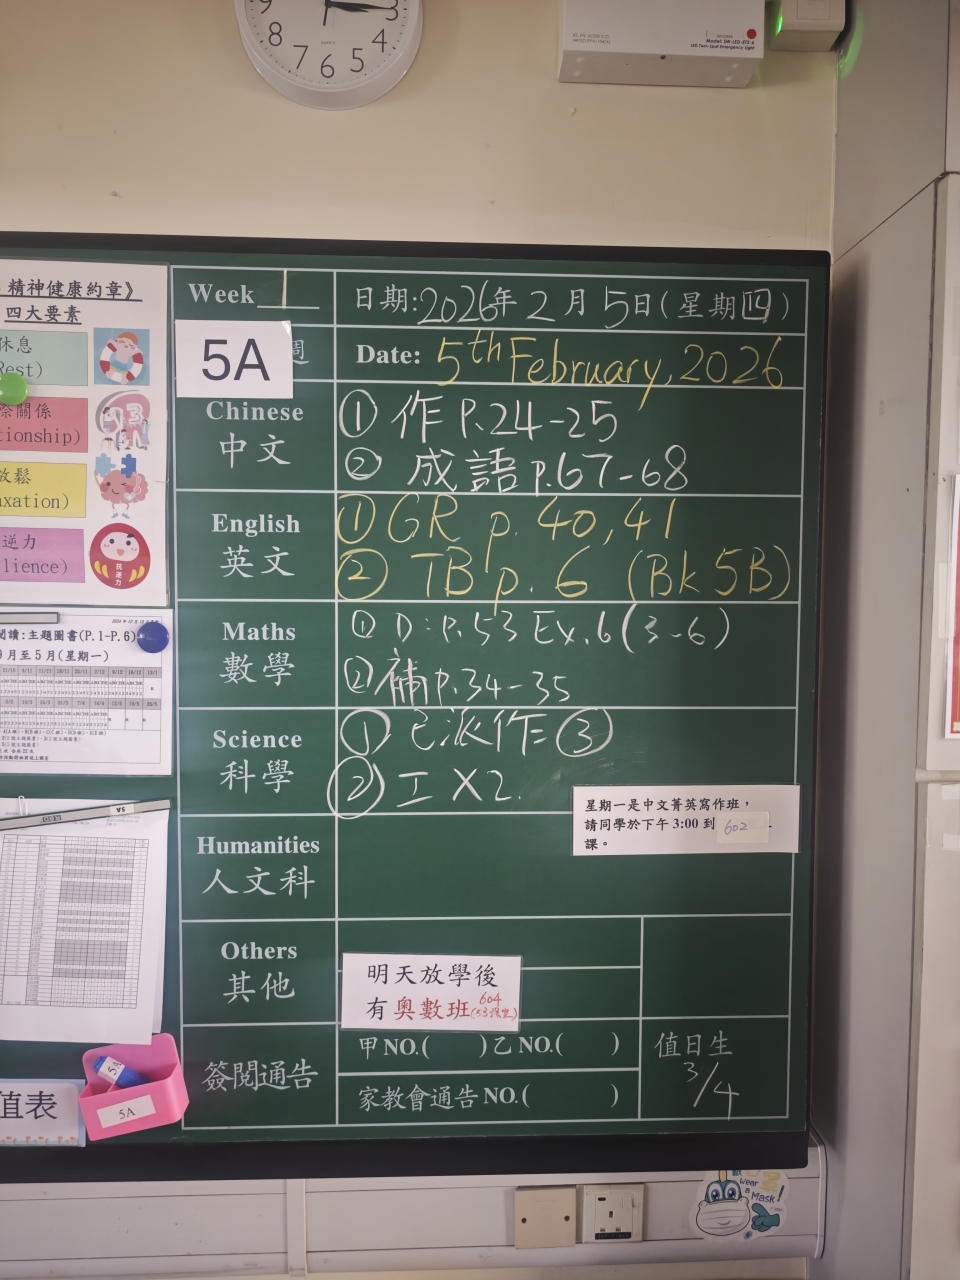 8
7
6
5
4
3
Model: SW-LED-2T2-6
LED Twin Spot Emergency Light
精神健康約章》
四大要素
休息
Rest)
際關係
tionship)
放鬆
axation)
逆力
lience)
抗逆力
閱讀:主題圖書(P.1-P.6)
月至5月(星期一)
5A
5A
5A
值表
Week 1
週
5A
日期:2026年2月5日(星期四)
Date: 5th February, 2026
Chinese
中文
① 作 P.24-25
② 成語 p.67-68
English
英文
① GR p. 40, 41
② TB p. 6 (Bk 5B)
Maths
數學
① D: P.53 Ex.6(3-6)
② 補P.34-35
Science
科學
① 已派作③
② 工 X2.
星期一是中文菁英寫作班，
請同學於下午 3:00 到 602
課。
Humanities
人文科
Others
其他
明天放學後
有奧數班 604
簽閱通告
甲NO.( )乙NO.( )
家教會通告NO.( )
值日生
3/4
Wear
a
Mask!